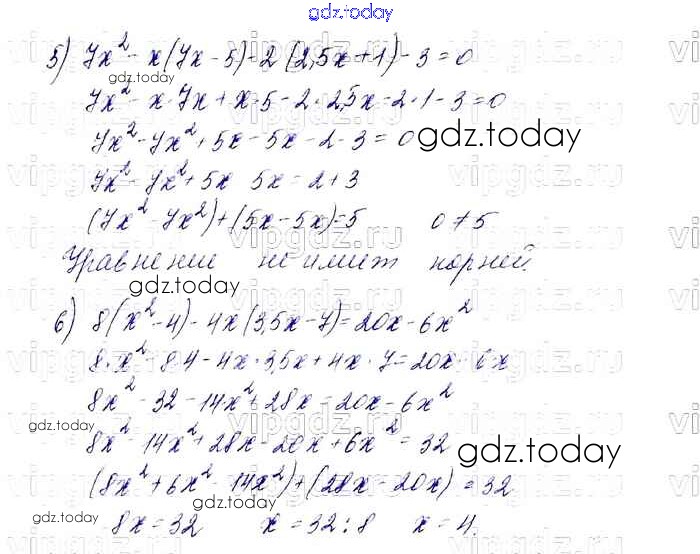 gdz.today
5) 7x² - x(7x - 5) - 2(2,5x + 1) - 3 = 0
gdz.today
7x² - x · 7x + x · 5 - 2 · 2,5x - 2 · 1 - 3 = 0
7x² - 7x² + 5x - 5x - 2 - 3 = 0
gdz.today
7x² - 7x² + 5x 5x = 2 + 3
(7x² - 7x²) + (5x - 5x) = 5 0 ≠ 5
Уравнение не имеет корней.
gdz.today
6) 8(x² - 4) - 4x(3,5x - 7) = 20x - 6x²
8 · x² - 8 · 4 - 4x · 3,5x + 4x · 7 = 20x - 6x
8x² - 32 - 14x² + 28x = 20x - 6x²
gdz.today
8x² - 14x² + 28x - 20x + 6x² = 32
gdz.today
(8x² + 6x² - 14x²) + (28x - 20x) = 32
gdz.today
gdz.today
8x = 32 x = 32 : 8 x = 4.